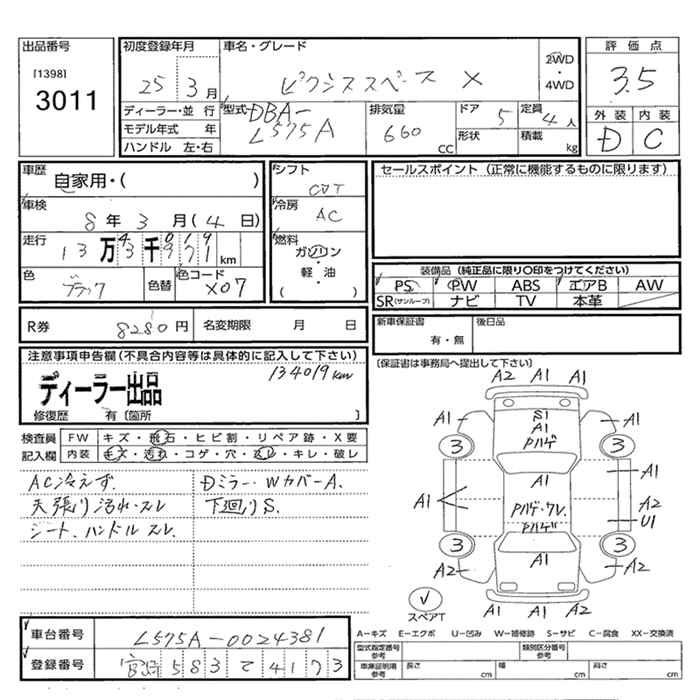 出品番号
[1398]
3011
初度登録年月
25 3月
車名・グレード
ピクシススペース X
2WD
・
4WD
評価点
3.5
外装 内装
D C
ディーラー・並行
モデル年式 年
ハンドル 左・右
型式 DBA-
L575A
排気量
660 CC
ドア 5
形状
定員 4人
積載 kg
車歴
自家用・( )
車検
8年 3月(4日)
走行
13万 3千971 km
4 019
色 ブラック
色替
色コード X07
シフト
CVT
冷房
AC
燃料
ガソリン
・
軽・油
( )
セールスポイント(正常に機能するものに限ります)
装備品(純正品に限り〇印をつけてください)
PS PW ABS エアB AW
SR(サンルーフ) ナビ TV 本革
R券 8280円 名変期限 月 日
新車保証書
有・無
後日品
注意事項申告欄(不具合内容等は具体的に記入して下さい)
134019km
ディーラー出品
修復歴 有〔箇所 〕
〔保証書は事務局へ提出して下さい〕
検査員
記入欄
FW キズ・飛石・ヒビ割・リペア跡・X要
内装 キズ・汚れ・コゲ・穴・スレ・キレ・破レ
AC冷えず. Dミラー・WカバーA.
天張り汚れ・スレ 下廻りS.
シート、ハンドルスレ.
A2 A1 A1
A1 S1 A1
A1
Pハゲ
3 3
A1 A1
A1
Pハゲ・ワレ A2
Pハゲ U1
3 3
A2 A1 A2
A1 A1 A2
スペアT
A-キズ E-エクボ U-凹み W-補修跡 S-サビ C-腐食 XX-交換済
車台番号 L575A-0024381
登録番号 宮崎 583 て 4173
型式指定番号
参考
類別区分番号
参考
車庫証明用
参考
長さ cm
幅 cm
高さ cm